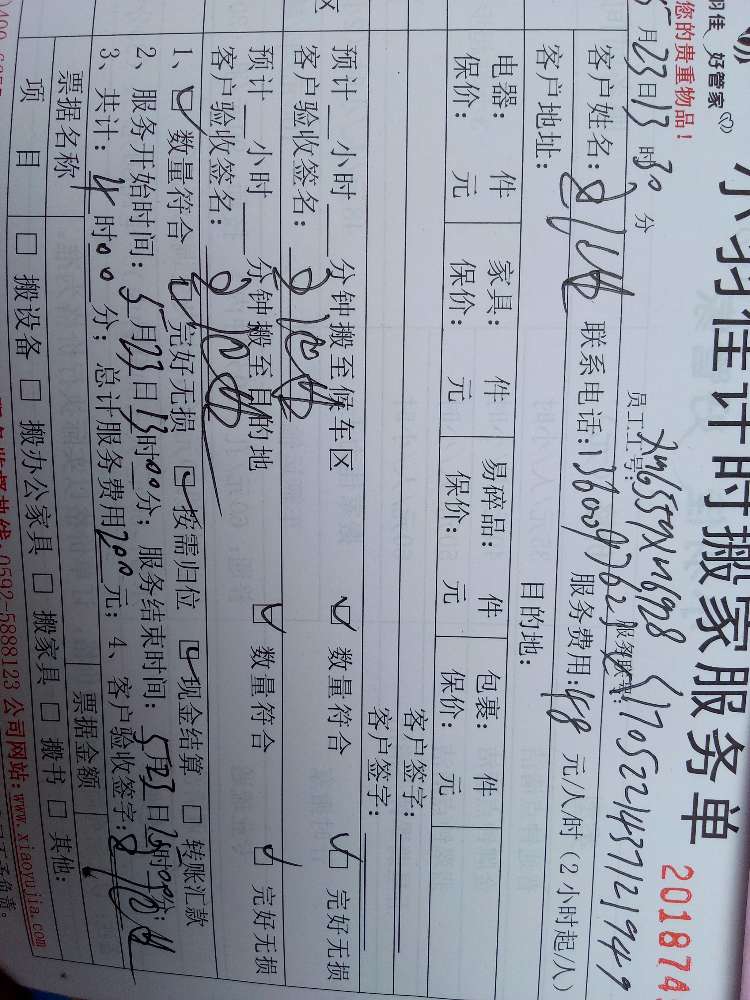 羽佳 好管家
小羽佳计时搬家服务单
201874
您的贵重物品!
5月23日13时30分
员工工号:
服务联单: S1705221437121949
客户姓名: 联系电话: 服务费用:48 元/人/时(2小时起/人)
客户地址: 目的地:
电器: 件 家具: 件 易碎品: 件 包裹: 件
保价: 元 保价: 元 保价: 元 保价: 元
客户签字:
客户签字:
预计 小时 分钟搬至候车区 数量符合 完好无损
客户验收签名:
预计 小时 分钟搬至目的地 数量符合 完好无损
客户验收签名:
1、 数量符合 完好无损 按需归位 现金结算 转账汇款
2、服务开始时间:5月23日13时00分;服务结束时间:5月23日 时00分;
3、共计:4时00分;总计服务费用200元;4、客户验收签字:
票据名称 票据金额
项 目 搬设备 搬办公家具 搬家具 搬书 其他:
0592-5888123 公司网站:www.xiaoyujia.com